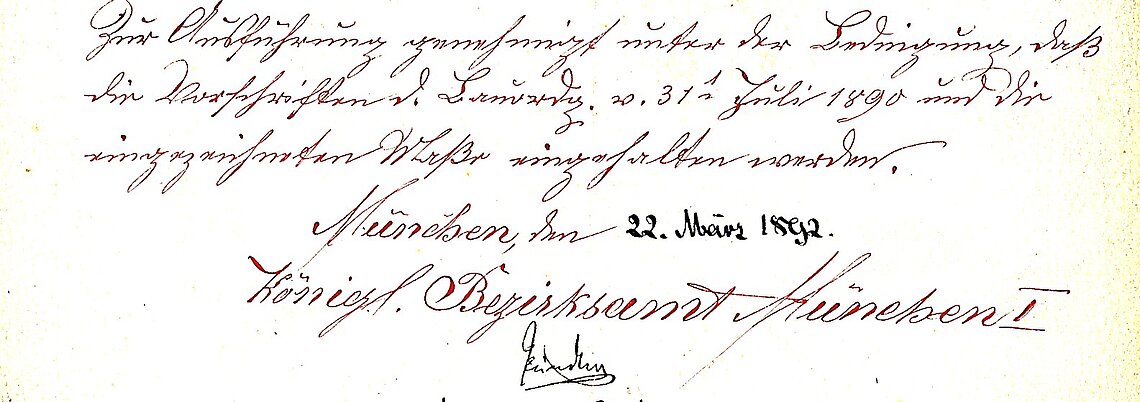 Zur Ausführung genehmigt unter der Bedingung, daß
die Vorschriften d. Bauordg. v. 31t Juli 1890 und die
eingezeichneten Maße eingehalten werden.
München, den 22. März 1892.
Königl. Bezirksamt München I